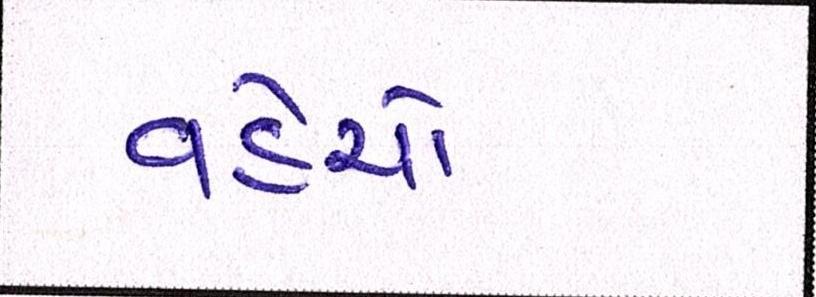 વહેચો